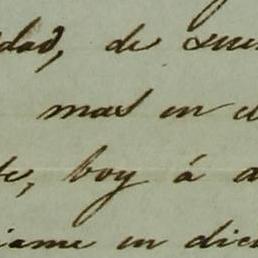 dad, de
mas en
te, boy á
iame en